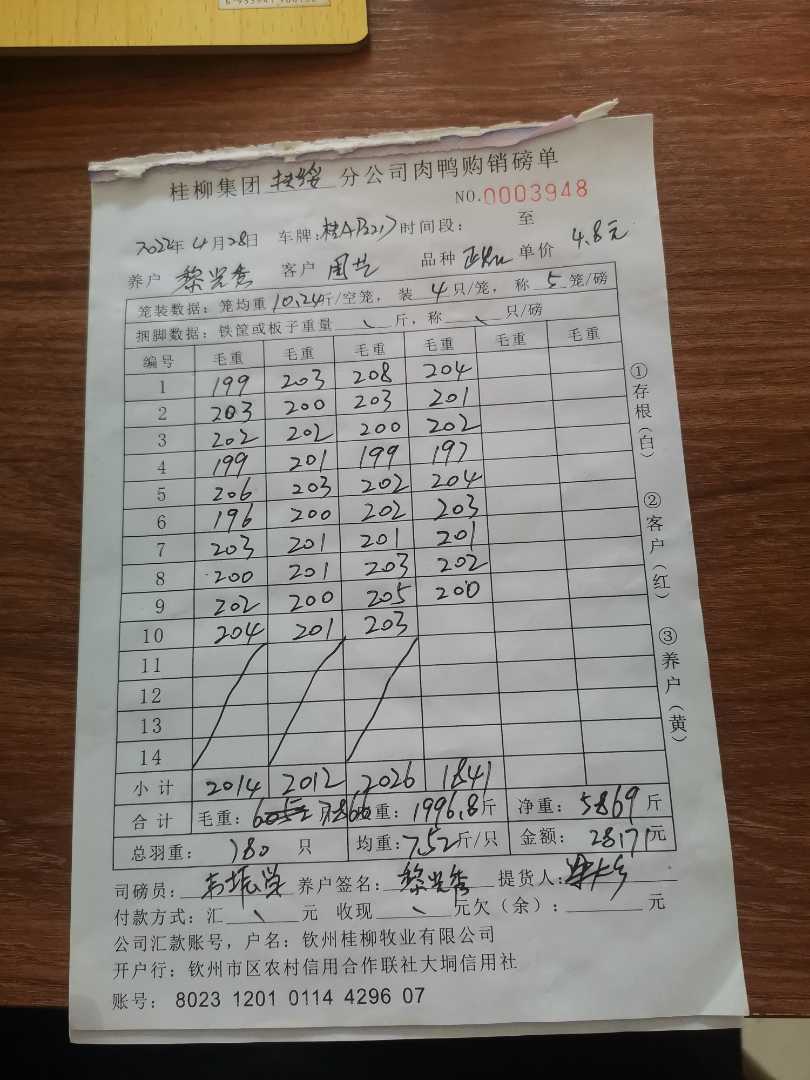 桂柳集团 扶绥 分公司肉鸭购销磅单
NO.0003948
2022年 4月28日 车牌: 时间段: 至
养户 黎光秀 客户 周芝 品种 单价 4.8元
笼装数据: 笼均重 10.24斤/空笼, 装 4 只/笼, 称 5 笼/磅
捆脚数据: 铁筐或板子重量 斤, 称 只/磅
编号 毛重 毛重 毛重 毛重 毛重 毛重
1 199 203 208 204
2 203 200 203 201
3 202 202 200 202
4 199 201 199 197
5 206 203 202 204
6 196 200 202 203
7 203 201 201 201
8 200 201 203 202
9 202 200 205 200
10 204 201 203
11
12
13
14
小计 2014 2012 2026 1841
合计 毛重: 重: 1996.8斤 净重: 5869 斤
总羽重: 780 只 均重: 7.52斤/只 金额: 28171元
司磅员: 养户签名: 黎光秀 提货人:
付款方式: 汇 元 收现 元欠(余): 元
公司汇款账号, 户名: 钦州桂柳牧业有限公司
开户行: 钦州市区农村信用合作联社大垌信用社
账号: 8023 1201 0114 4296 07
①存根(白) ②客户(红) ③养户(黄)